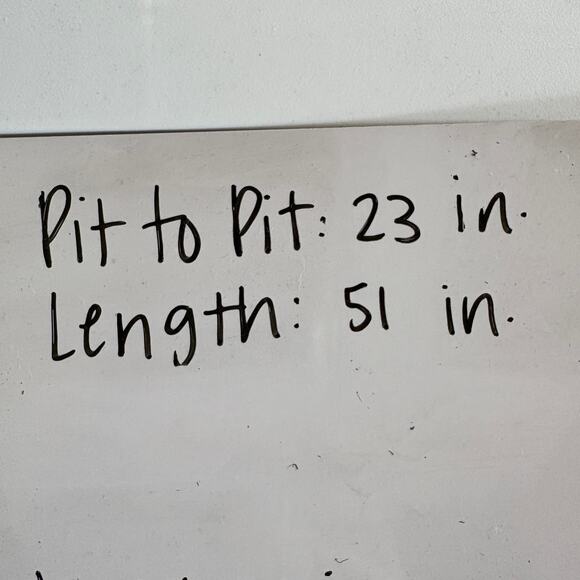 Pit to Pit: 23 in.
Length: 51 in.